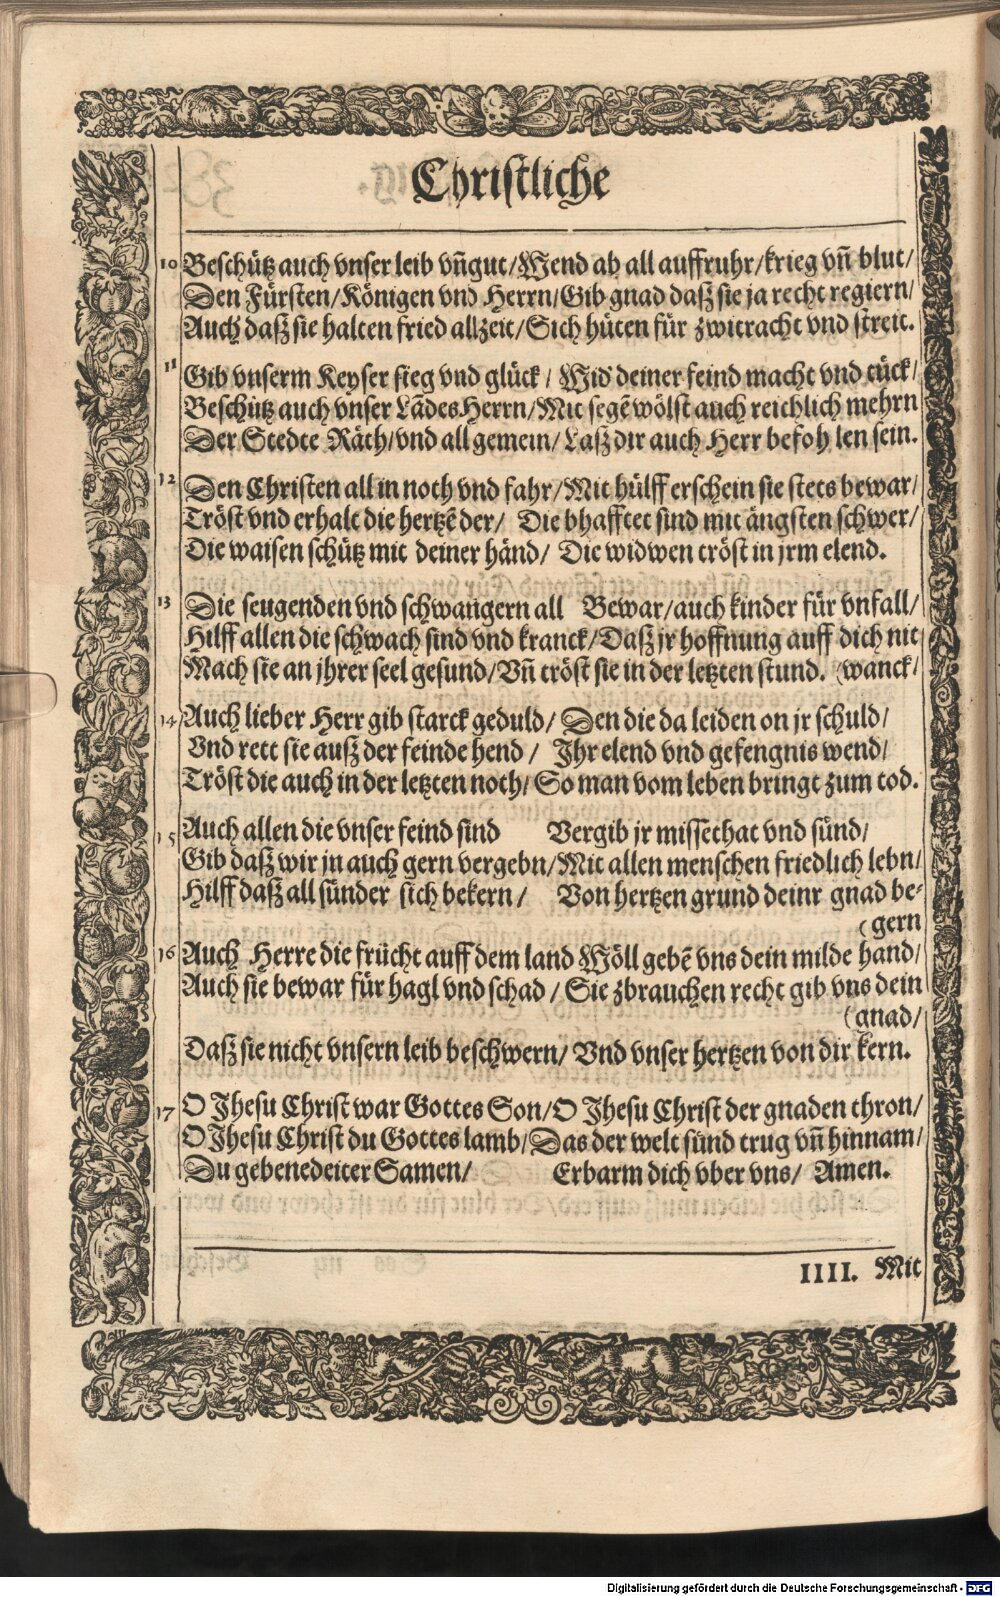 Christliche
10 Beschütz auch vnser leib vñ gut/ Wend ab all auffruhr/ krieg vñ blut/
Den Fürsten/ Königen vnd Herrn/ Gib gnad daß sie ja recht regiern/
Auch daß sie halten fried allzeit/ Sich hüten für zwitracht vnd streit.
11 Gib vnserm Keyser sieg vnd glück/ Wid deiner feind macht vnd tück/
Beschütz auch vnser Lãdes Herrn/ Mit segẽ wölst auch reichlich mehrn
Der Stedte Räth/ vnd all gemein/ Laß dir auch Herr befoh len sein.
12 Den Christen all in noth vnd fahr/ Mit hülff erschein sie stets bewar/
Tröst vnd erhalt die hertzẽ der/ Die bhafftet sind mit ängsten schwer/
Die waisen schütz mit deiner händ/ Die widwen tröst in jrm elend.
13 Die seugenden vnd schwangern all Bewar/ auch kinder für vnfall/
Hilff allen die schwach sind vnd kranck/ Daß jr hoffnung auff dich nit
Mach sie an jhrer seel gesund/ Vñ tröst sie in der letzten stund. (wanck/
14 Auch lieber Herr gib starck geduld/ Den die da leiden on jr schuld/
Vnd rett sie auß der feinde hend/ Ihr elend vnd gefengnis wend/
Tröst die auch in der letzten noth/ So man vom leben bringt zum tod.
15 Auch allen die vnser feind sind Vergib jr missethat vnd sünd/
Gib daß wir jn auch gern vergebn/ Mit allen menschen friedlich lebn/
Hilff daß all sünder sich bekern/ Von hertzen grund deinr gnad be-
(gern
16 Auch Herre die frücht auff dem land Wöll gebẽ vns dein milde hand/
Auch sie bewar für hagl vnd schad/ Sie zbrauchen recht gib vns dein
(gnad/
Daß sie nicht vnsern leib beschwern/ Vnd vnser hertzen von dir kern.
17 O Jhesu Christ war Gottes Son/ O Jhesu Christ der gnaden thron/
O Jhesu Christ du Gottes lamb/ Das der welt sünd trug vñ hinnam/
Du gebenedeiter Samen/ Erbarm dich vber vns/ Amen.
IIII. Mit
Digitalisierung gefördert durch die Deutsche Forschungsgemeinschaft - DFG